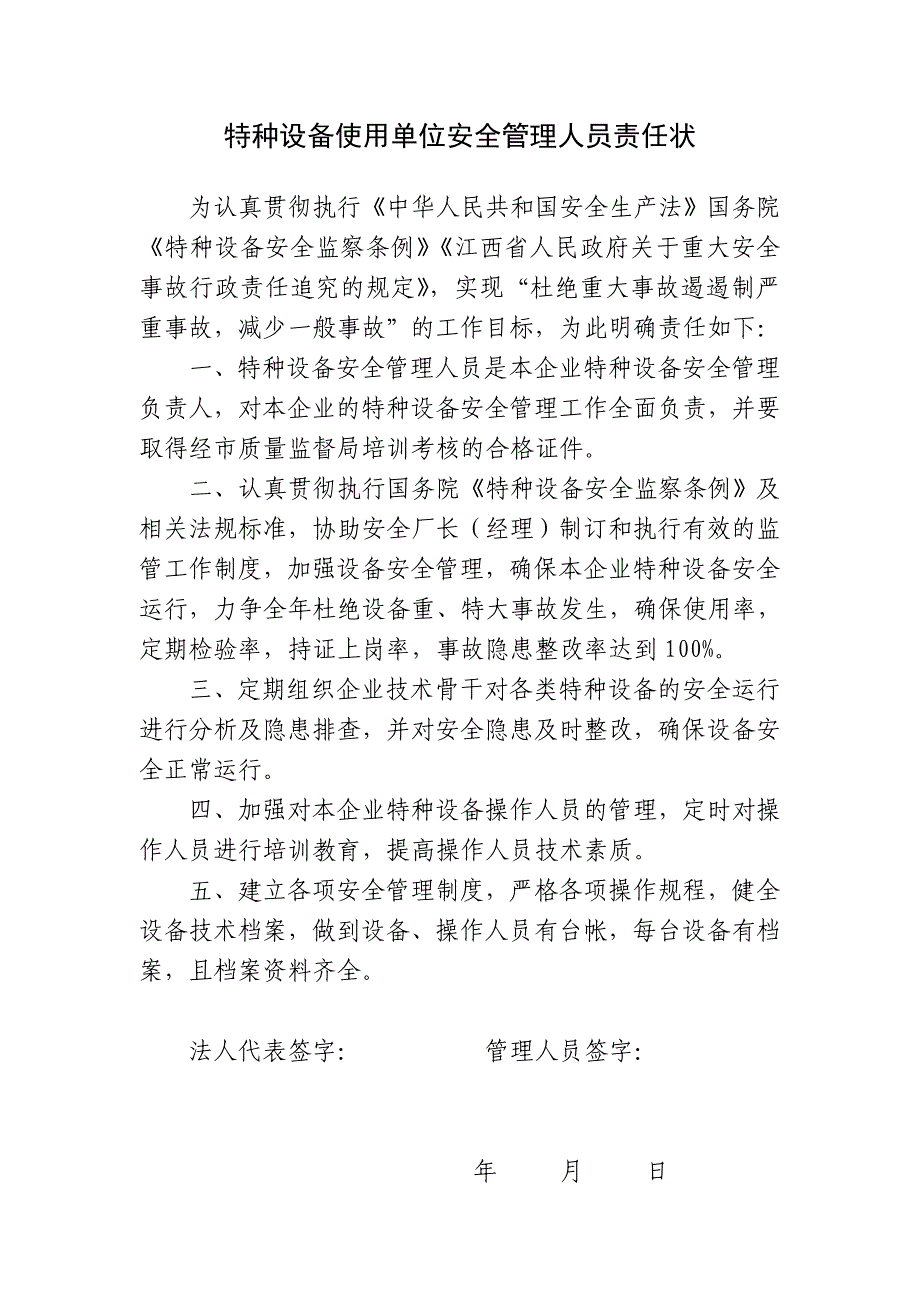 特种设备使用单位安全管理人员责任状
为认真贯彻执行《中华人民共和国安全生产法》国务院
《特种设备安全监察条例》《江西省人民政府关于重大安全
事故行政责任追究的规定》，实现“杜绝重大事故遏遏制严
重事故，减少一般事故”的工作目标，为此明确责任如下：
一、特种设备安全管理人员是本企业特种设备安全管理
负责人，对本企业的特种设备安全管理工作全面负责，并要
取得经市质量监督局培训考核的合格证件。
二、认真贯彻执行国务院《特种设备安全监察条例》及
相关法规标准，协助安全厂长（经理）制订和执行有效的监
管工作制度，加强设备安全管理，确保本企业特种设备安全
运行，力争全年杜绝设备重、特大事故发生，确保使用率，
定期检验率，持证上岗率，事故隐患整改率达到100%。
三、定期组织企业技术骨干对各类特种设备的安全运行
进行分析及隐患排查，并对安全隐患及时整改，确保设备安
全正常运行。
四、加强对本企业特种设备操作人员的管理，定时对操
作人员进行培训教育，提高操作人员技术素质。
五、建立各项安全管理制度，严格各项操作规程，健全
设备技术档案，做到设备、操作人员有台帐，每台设备有档
案，且档案资料齐全。
法人代表签字： 管理人员签字：
年 月 日